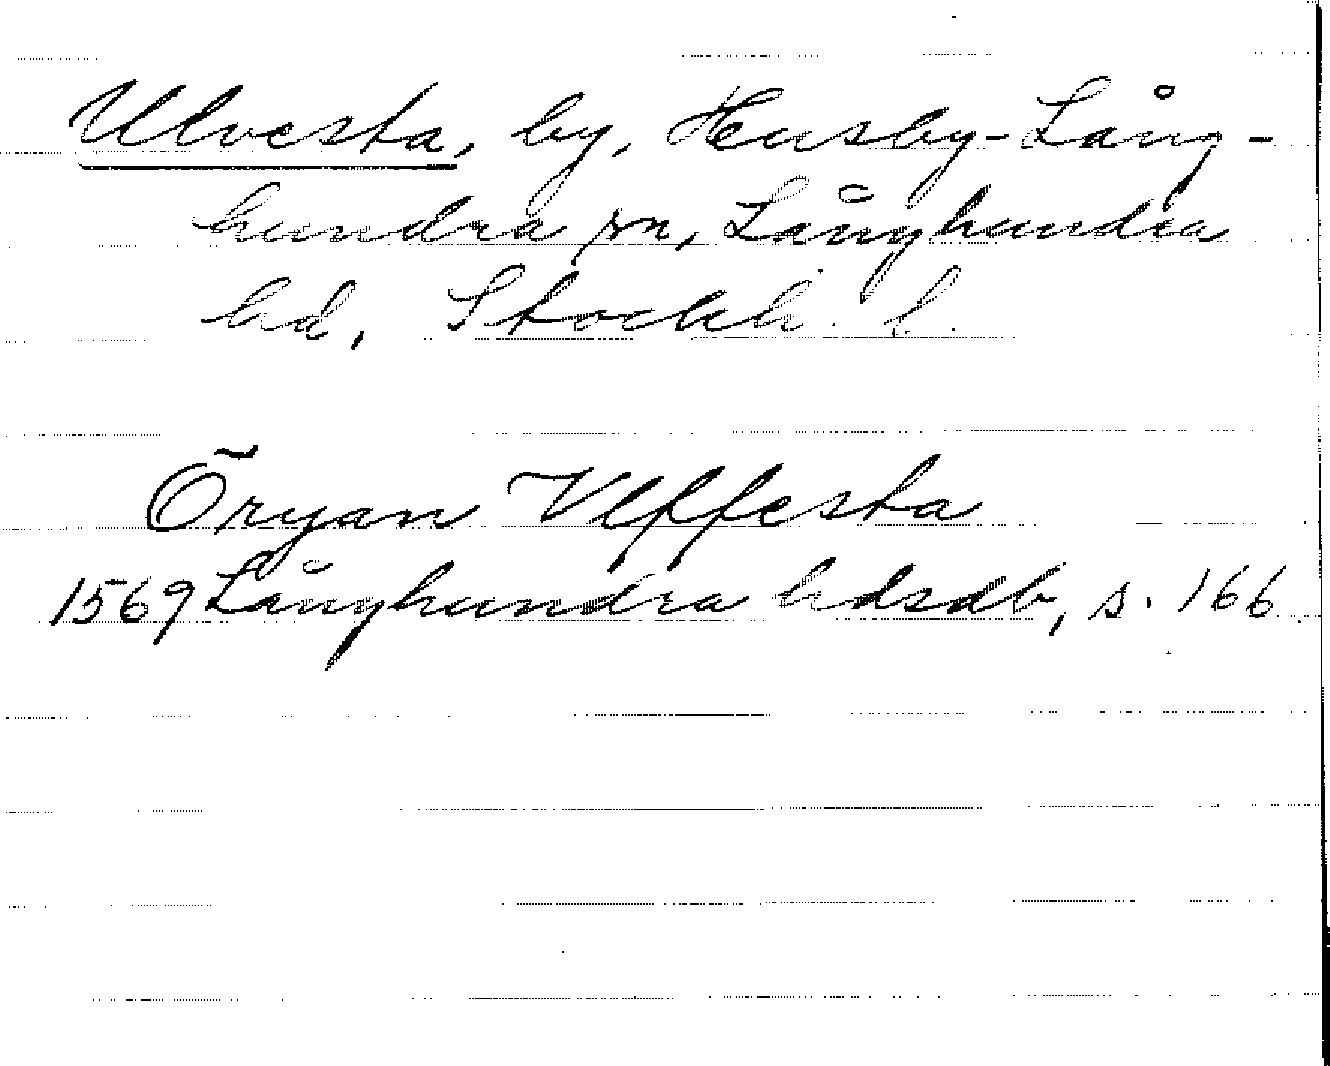 Ulvesta, by, Husby-Lång-
hundra sn, Långhundra
hd, Stockh. l.
Õryan Vlffesta
1569 Långhundra hdsdb, s. 166